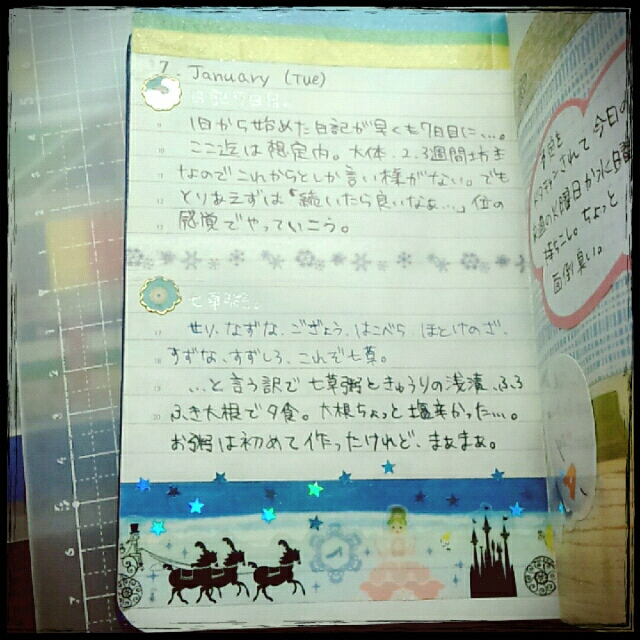 7 January (TUE)
日記7日目。
1日から始めた日記が早くも7日目に…。
ここ迄は想定内。大体、2、3週間坊主
なのでこれからとしか言い様がない。でも
とりあえずは「続いたら良いなぁ…」位の
感覚でやっていこう。
七草粥。
せり、なずな、ごぎょう、はこべら、ほとけのざ、
すずな、すずしろ、これぞ七草。
…と言う訳で七草粥ときゅうりの浅漬、ふろ
ふき大根で夕食。大根ちょっと塩辛かった…。
お粥は初めて作ったけれど、まぁまぁ。
されて今日の
火曜日かつに日曜
持ちこし。ちょっと
面倒臭い。